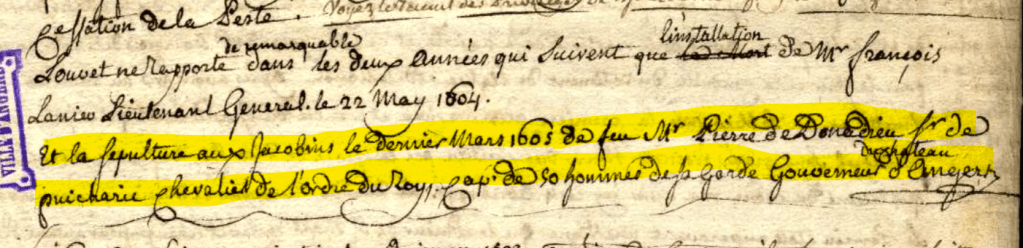 cessation de la Peste.
de remarquable l'installation
Louvet ne rapporte dans les deux années qui suivent que la mort de Mr françois
Lanier Lieutenant General. le 22 May 1604.
Et la sepulture aux Jacobins le dernier Mars 1605 de feu Mr Pierre de Donadieu Sr de
du chateau
puicharic chevalier de l'ordre du Roy, cape. de 50 hommes de sa Garde Gouverneur d'Angers
VILLE D'ANGERS